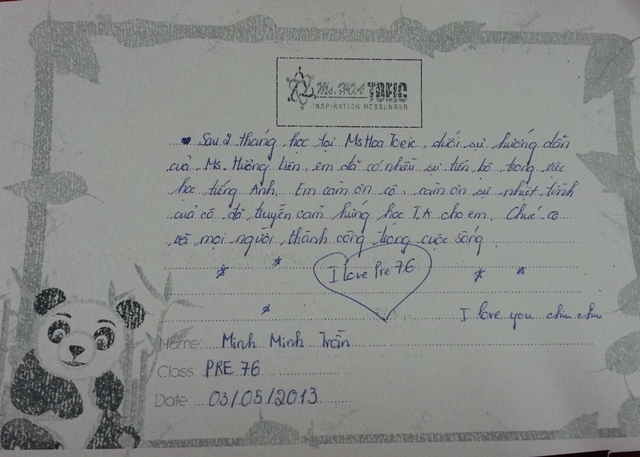 Ms. HOA TOEIC
INSPIRATION MESSENGER
Sau 2 tháng học tại Ms Hoa Toeic, dưới sự hướng dẫn
của Ms. Hường Liên, em đã có nhiều sự tiến bộ trong việc
học tiếng Anh. Em cảm ơn cô, cảm ơn sự nhiệt tình
của cô đã truyền cảm hứng học T.A cho em. Chúc cô
và mọi người thành công trong cuộc sống.
I love Pre 76
I love you chu chu
Name: Minh Minh Trần
Class: PRE 76
Date: 03/05/2013